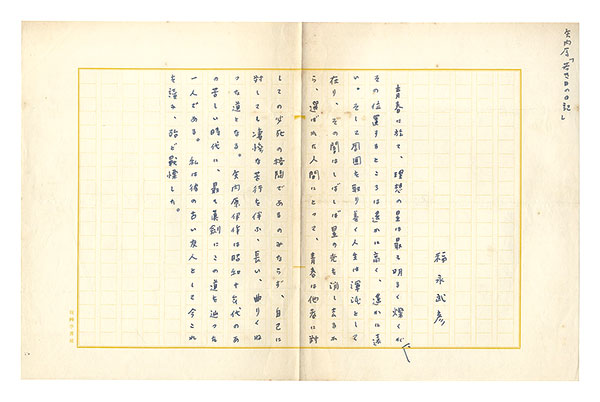 矢内原「若き日の日記」
福永武彦
青春に於て、理想の星は最も明るく燦くが
その位置するところは遙かに高く、遙かに遠
い。そして周囲を取り巻く人生は渾沌として
在り、その闇はしばしば星の光を消しさるか
ら、選ばれた人間にとって、青春は他者に対
しての必死の格闘であるのみならず、自己に
対しても凄惨な苦行を伴ふ、長い、曲りくね
った道となる。矢内原伊作は昭和十年代のあ
の苦しい時代に、最も真剣にこの道を辿った
一人である。私は彼の古い友人として今これ
を読み、殆ど戦慄した。